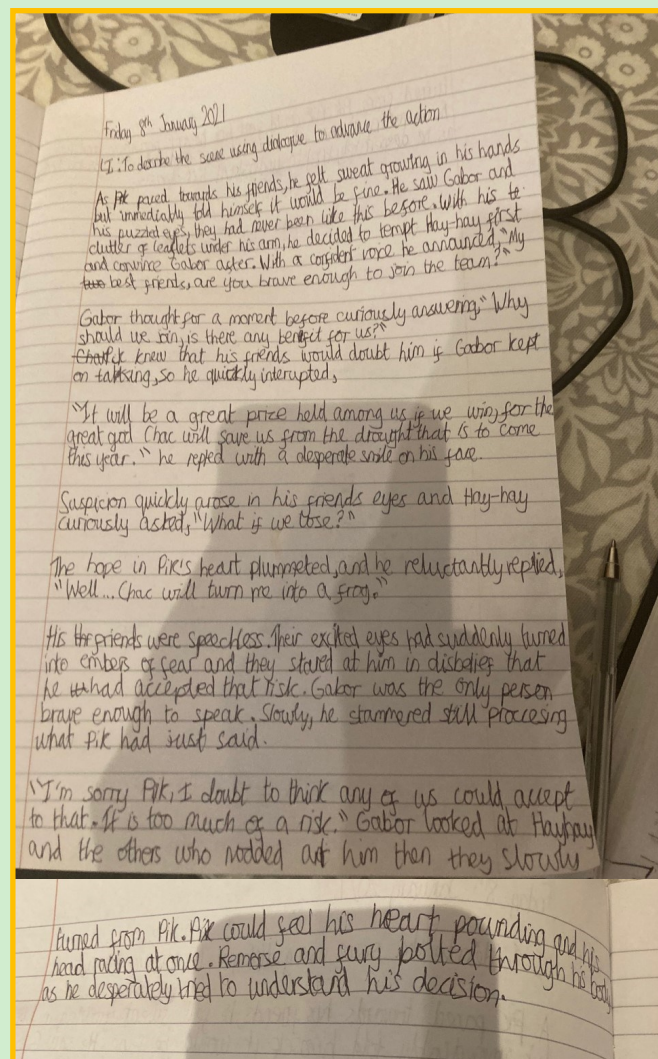 Friday 8th January 2021
LI: To describe the scene using dialogue to advance the action
As Pik paced towards his friends, he felt sweat growing in his hands
but immediatly told himself it would be fine. He saw Gabor and
his puzzled eyes, they had never been like this before. With his te
clutter of leaflets under his arm, he decided to tempt Hay-hay first
and convince Gabor after. With a confident voice he announced, "My
two best friends, are you brave enough to join the team?"
Gabor thought for a moment before curiously answering, "Why
should we join, is there any benefit for us?"
Pik knew that his friends would doubt him if Gabor kept
on talking, so he quickly interupted,
"It will be a great prize held among us if we win, for the
great god Chac will save us from the drought that is to come
this year." he replied with a desperate smile on his face.
Suspicion quickly arose in his friends eyes and Hay-hay
curiously asked, "What if we lose?"
The hope in Pik's heart plummeted, and he reluctantly replied,
"Well... Chac will turn me into a frog."
His friends were speechless. Their excited eyes had suddenly turned
into embers of fear and they stared at him in disbelief that
he had accepted that risk. Gabor was the only person
brave enough to speak. Slowly, he stammered still proccesing
what Pik had just said.
"I'm sorry Pik, I doubt to think any of us could accept
to that. It is too much of a risk." Gabor looked at Hayhay
and the others who nodded at him then they slowly
turned from Pik. Pik could feel his heart pounding and his
head racing at once. Remorse and fury bolted through his body
as he desperately tried to understand his decision.